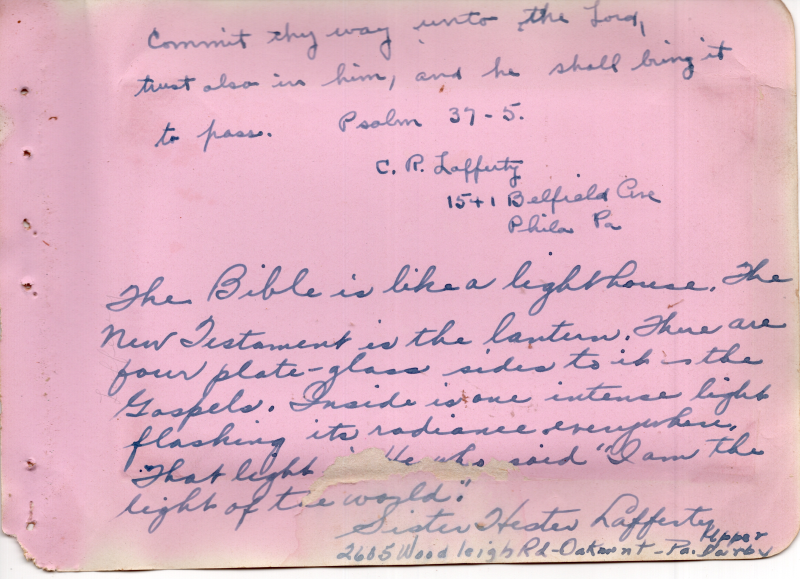 Commit thy way unto the Lord,
trust also in him, and he shall bring it
to pass. Psalm 37-5.
C. R. Lafferty
1541 Belfield Ave
Phila Pa
The Bible is like a lighthouse. The
New Testament is the lantern. There are
four plate-glass sides to it - the
Gospels. Inside is one intense light
flashing its radiance everywhere.
That light He who said "I am the
light of the world."
Sister Hester Lafferty
Upper
2605 Woodleigh Rd - Oakmont - Pa. Darby